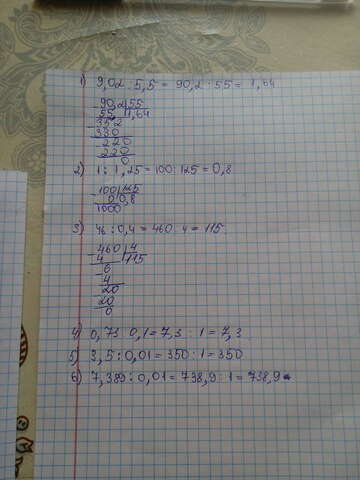 1) 9,02 : 5,5 = 90,2 : 55 = 1,64
90,2 | 55
55 | 1,64
352
330
220
220
0
2) 1 : 1,25 = 100 : 125 = 0,8
100 | 125
0 | 0,8
1000
3) 46 : 0,4 = 460 : 4 = 115
460 | 4
4 | 115
6
4
20
20
0
4) 0,73 : 0,1 = 7,3 : 1 = 7,3
5) 3,5 : 0,01 = 350 : 1 = 350
6) 7,389 : 0,01 = 738,9 : 1 = 738,9